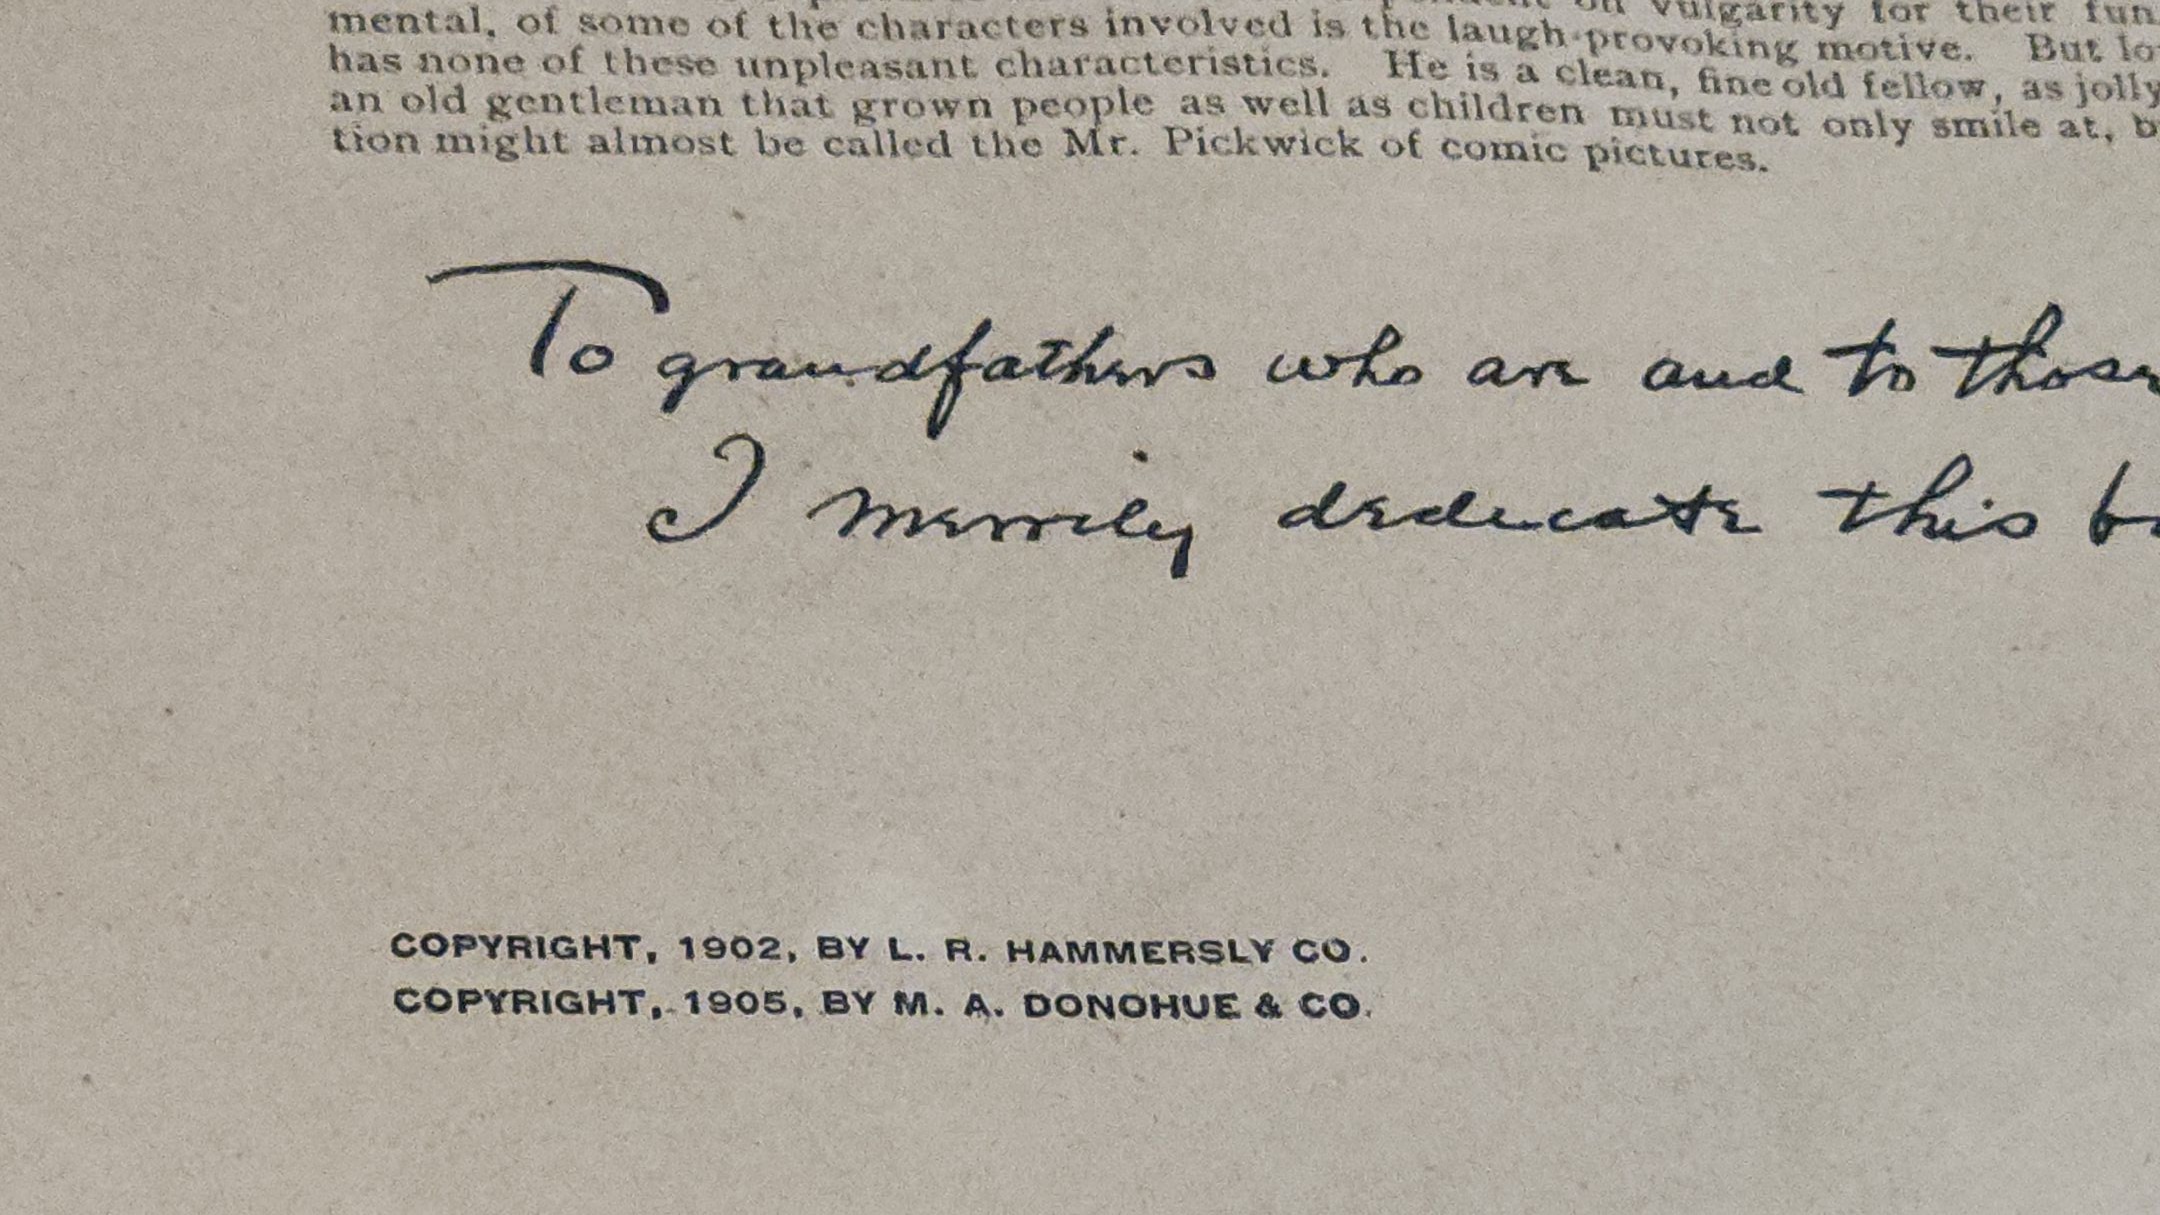 vulgarity for their fun
mental, of some of the characters involved is the laugh-provoking motive. But
has none of these unpleasant characteristics. He is a clean, fine old fellow, as jolly
an old gentleman that grown people as well as children must not only smile at,
tion might almost be called the Mr. Pickwick of comic pictures.
To grandfathers who are and to those
I merrily dedicate this
COPYRIGHT, 1902, BY L. R. HAMMERSLY CO.
COPYRIGHT, 1905, BY M. A. DONOHUE & CO.